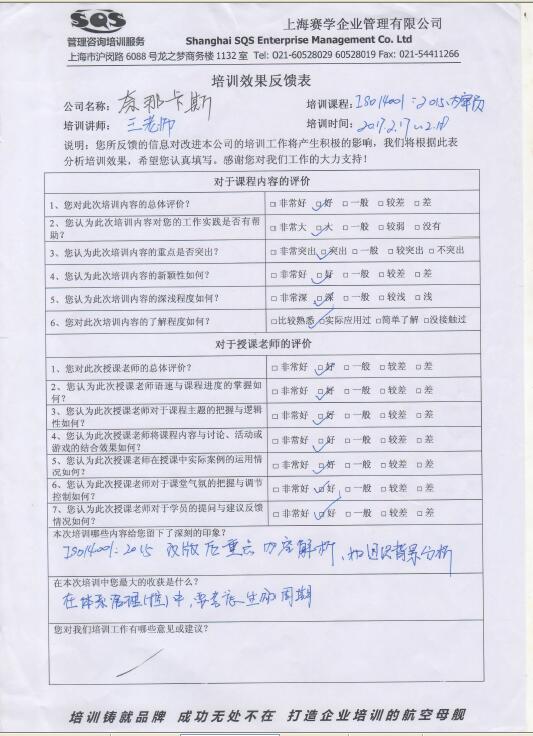 SQS
管理咨询培训服务
上海赛学企业管理有限公司
Shanghai SQS Enterprise Management Co. Ltd
上海市沪闵路 6088 号龙之梦商务楼 1132 室 Tel: 021-60528029 60528019 Fax: 021-54411266
培训效果反馈表
公司名称：奈那卡斯 培训课程：ISO14001：2015内审员
培训讲师：王老师 培训时间：2017.2.17~2.18
说明：您所反馈的信息对改进本公司的培训工作将产生积极的影响，我们将根据此表
分析培训效果，希望您认真填写。感谢您对我们工作的大力支持！
对于课程内容的评价
1、您对此次培训内容的总体评价？ □ 非常好 □ 好 □ 一般 □ 较差 □ 差
2、您认为此次培训内容对您的工作实践是否有帮
助？ □ 非常大 □ 大 □ 一般 □ 较弱 □ 没有
3、您认为此次培训内容的重点是否突出？ □ 非常突出 □ 突出 □ 一般 □ 较突出 □ 不突出
4、您认为此次培训内容的新颖性如何？ □ 非常好 □ 好 □ 一般 □ 较差 □ 差
5、您认为此次培训内容的深浅程度如何？ □ 非常深 □ 深 □ 一般 □ 较浅 □ 浅
6、您对此次培训内容的了解程度如何？ □比较熟悉 □实际应用过 □简单了解 □没接触过
对于授课老师的评价
1、您对此次授课老师的总体评价？ □ 非常好 □ 好 □ 一般 □ 较差 □ 差
2、您认为此次授课老师语速与课程进度的掌握如
何？ □ 非常好 □ 好 □ 一般 □ 较差 □ 差
3、您认为此次授课老师对于课程主题的把握与逻辑
性如何？ □ 非常好 □ 好 □ 一般 □ 较差 □ 差
4、您认为此次授课老师将课程内容与讨论、活动或
游戏的结合效果如何？ □ 非常好 □ 好 □ 一般 □ 较差 □ 差
5、您认为此次授课老师在授课中实际案例的运用情
况如何？ □ 非常好 □ 好 □ 一般 □ 较差 □ 差
6、您认为此次授课老师对于课堂气氛的把握与调节
控制如何？ □ 非常好 □ 好 □ 一般 □ 较差 □ 差
7、您认为此次授课老师对于学员的提问与建议反馈
情况如何？ □ 非常好 □ 好 □ 一般 □ 较差 □ 差
本次培训哪些内容给您留下了深刻的印象？
ISO14001：2015 改版后重点内容解析，和因识背景分析
在本次培训中您最大的收获是什么？
在体系管理中，要考虑生命周期
您对我们培训工作有哪些意见或建议？
培训铸就品牌 成功无处不在 打造企业培训的航空母舰